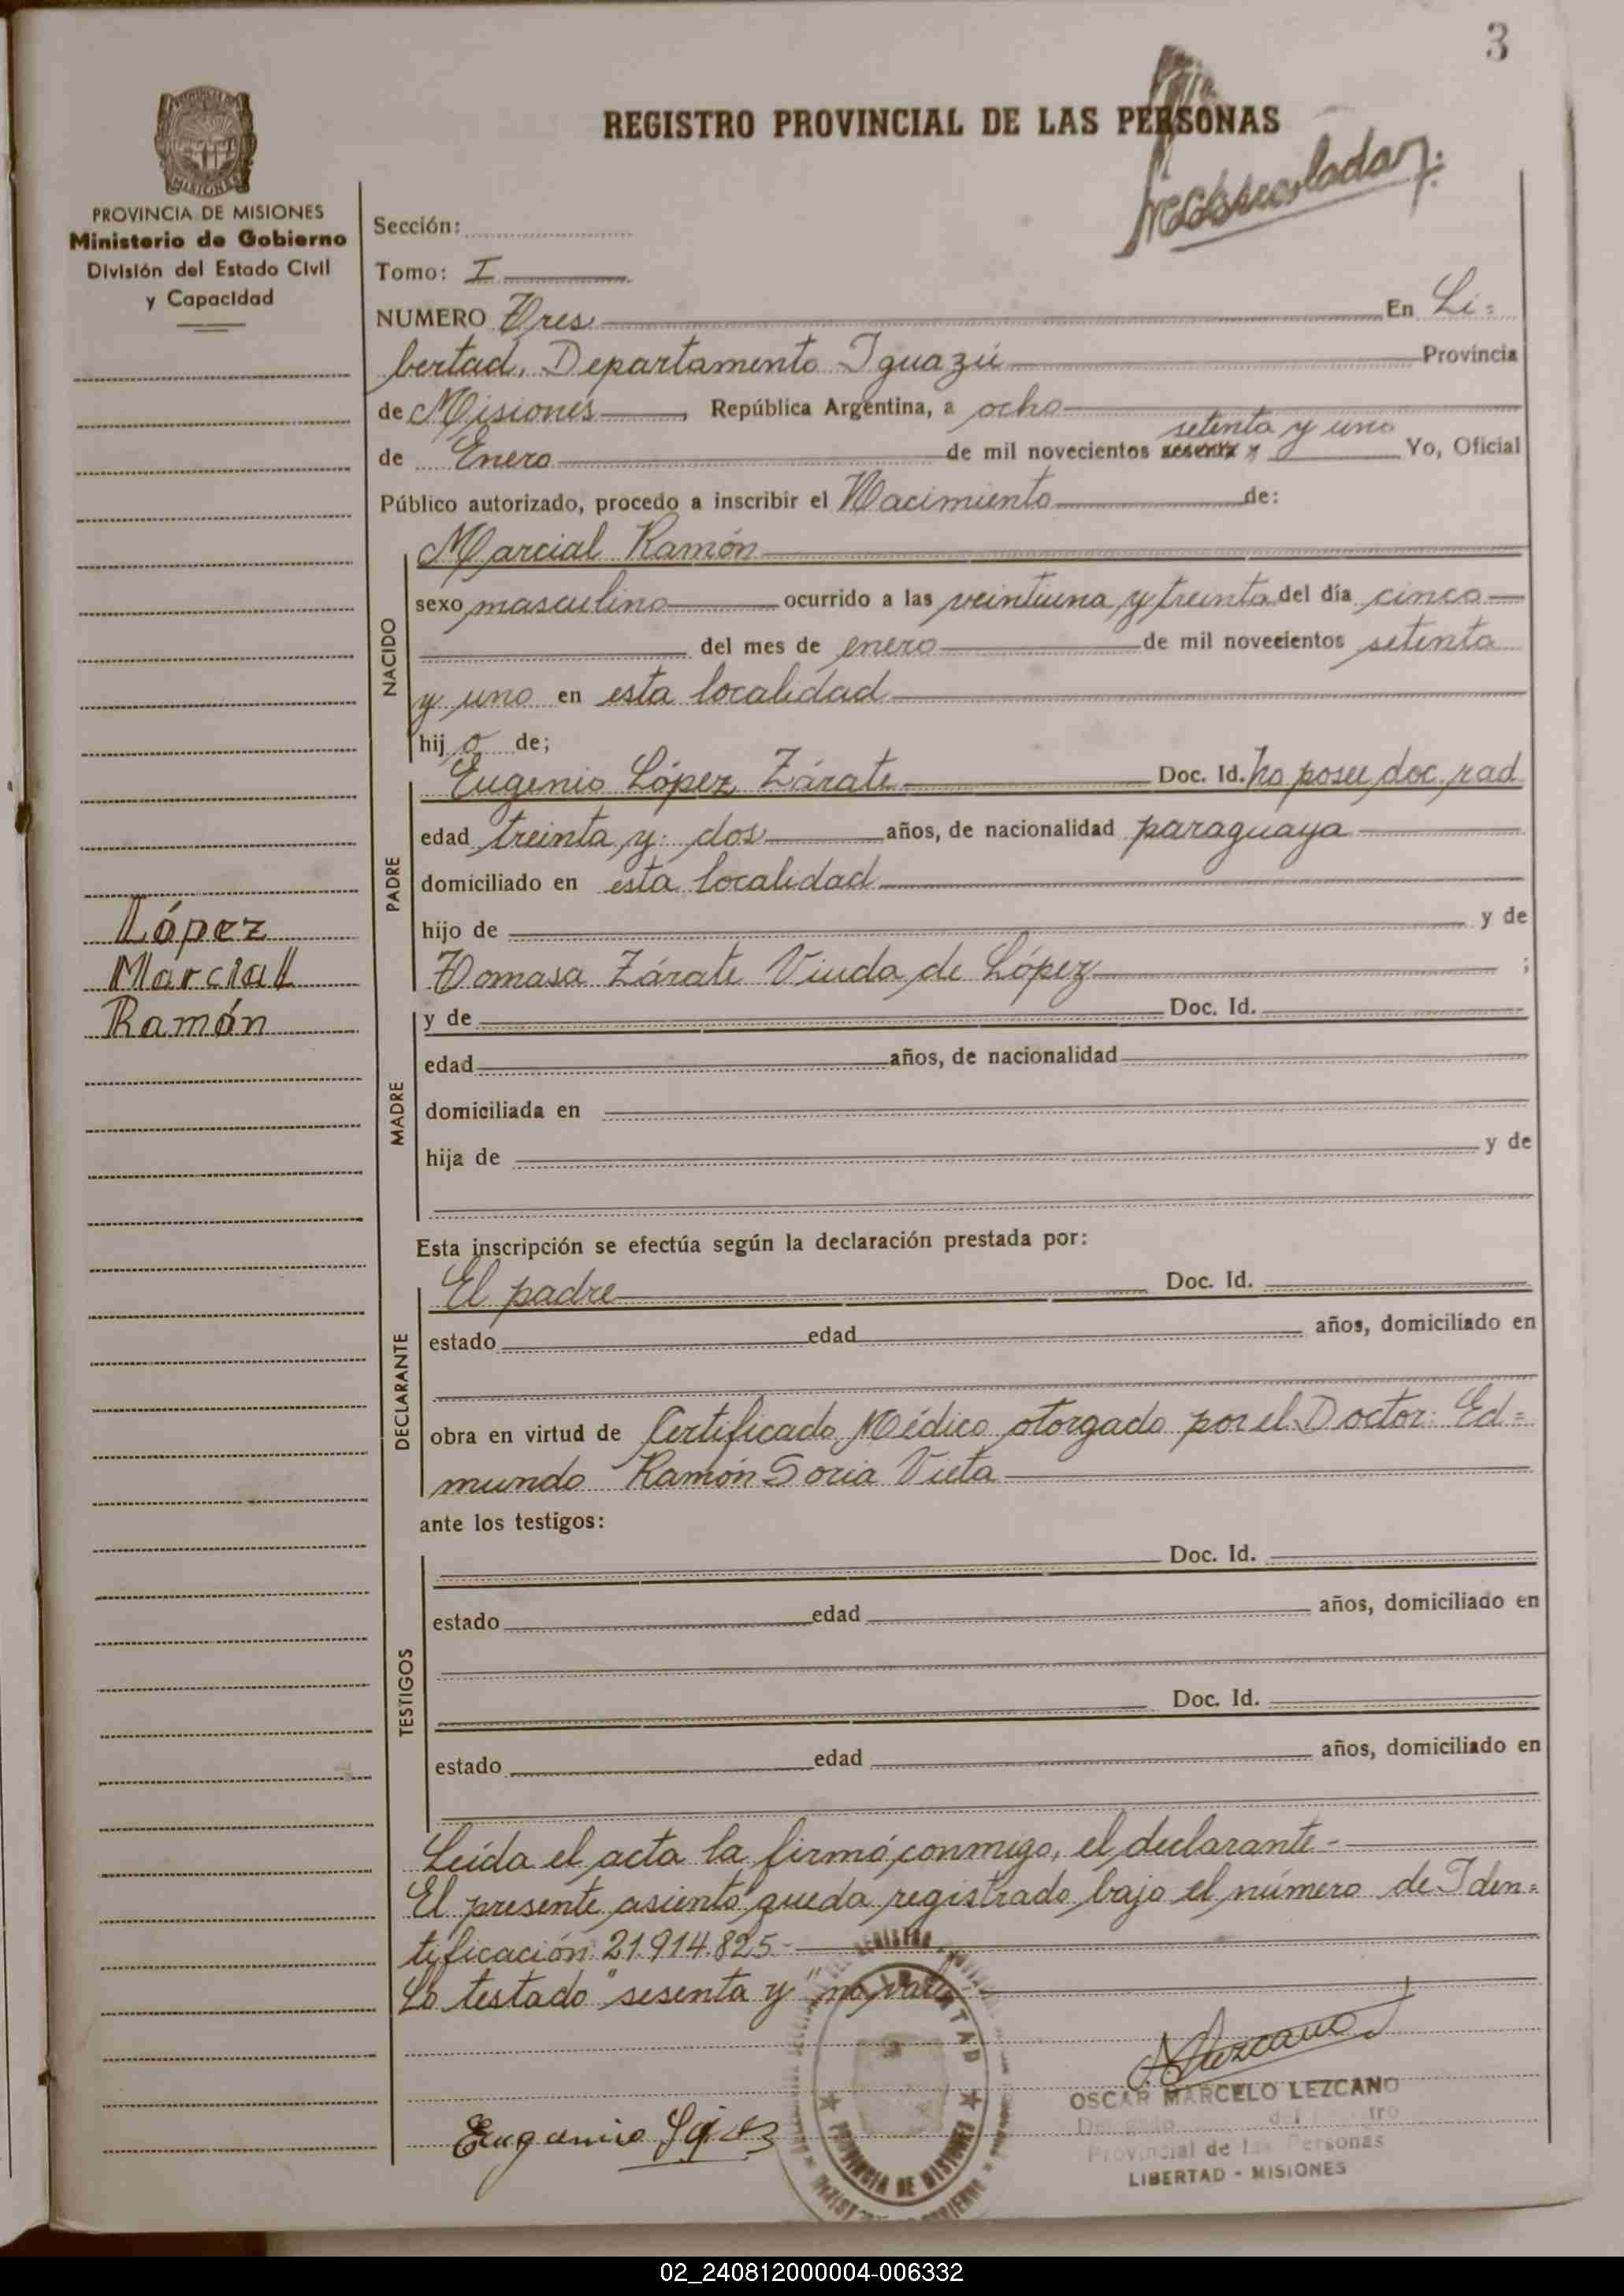 3
REGISTRO PROVINCIAL DE LAS PERSONAS
MISIONES
PROVINCIA DE MISIONES
Ministerio de Gobierno
División del Estado Civil
y Capacidad
Sección:
Tomo: I
NUMERO Tres En Li=
bertad, Departamento Iguazú Provincia
de Misiones, República Argentina, a ocho
setenta y uno
de Enero de mil novecientos sesenta y Yo, Oficial
Público autorizado, procedo a inscribir el Nacimiento de:
NACIDO
Marcial Ramón
sexo masculino ocurrido a las veintiuna y treinta del día cinco
del mes de enero de mil novecientos setenta
y uno en esta localidad
hijo de;
PADRE
Eugenio López Zárate Doc. Id. no posee doc. rad
edad treinta y dos años, de nacionalidad paraguaya
domiciliado en esta localidad
hijo de y de
Tomasa Zárate Viuda de López ;
López
Marcial
Ramón
MADRE
y de Doc. Id.
edad años, de nacionalidad
domiciliada en
hija de y de
Esta inscripción se efectúa según la declaración prestada por:
DECLARANTE
El padre Doc. Id.
estado edad años, domiciliado en
obra en virtud de Certificado Médico otorgado por el Doctor: Ed=
mundo Ramón Soria Vieta
ante los testigos:
TESTIGOS
Doc. Id.
estado edad años, domiciliado en
Doc. Id.
estado edad años, domiciliado en
Leída el acta la firmó conmigo, el declarante-
El presente asiento queda registrado bajo el número de Iden=
tificación 21.914.825-
Lo testado "sesenta y" no vale-
LIBERTAD
PROVINCIA DE MISIONES
Eugenio López
OSCAR MARCELO LEZCANO
Delegado del Registro
Provincial de las Personas
LIBERTAD - MISIONES
02_240812000004-006332